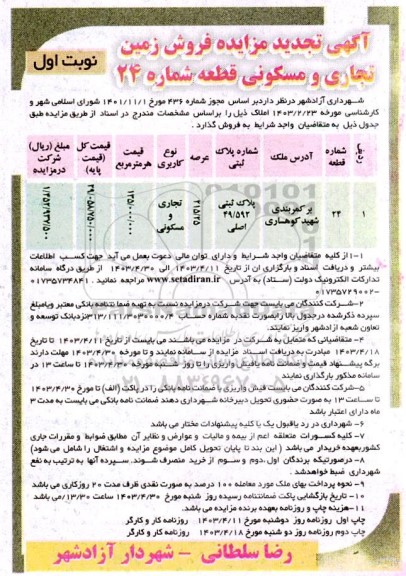 آگهی تجدید مزایده فروش زمین
تجاری و مسکونی قطعه شماره ۲۴
نوبت اول
شهرداری آزادشهر درنظر دارد بر اساس مجوز شماره ۴۳۶ مورخ ۱۴۰۱/۱۱/۱ شورای اسلامی شهر و
کارشناسی مورخه ۱۴۰۳/۲/۲۳ املاک ذیل را براساس مشخصات مندرج در اسناد از طریق مزایده طبق
جدول ذیل به متقاضیان واجد شرایط به فروش گذارد.
ردیف شماره قطعه آدرس ملک شماره پلاک ثبتی عرصه نوع کاربری قیمت هر مترمربع قیمت کل (قیمت پایه) مبلغ (ریال) شرکت در مزایده
۱ ۲۴ بر کمربندی شهید کوهساری پلاک ثبتی ۴۹/۵۹۲ اصلی تجاری و مسکونی
۱-از کلیه متقاضیان واجد شرایط و دارای توان مالی دعوت بعمل می آید جهت کسب اطلاعات
بیشتر و دریافت اسناد و بارگزاری ان از تاریخ ۱۴۰۳/۴/۱۱ الی ۱۴۰۳/۴/۳۰ از طریق درگاه سامانه
تدارکات الکترونیک دولت (ستاد) به آدرس www.setadiran.ir مراجعه نمائید. ۰۱۷۳۵۷۳۴۸۴۱
-۰۱۷۳۵۷۲۹۰۰۲
۲-شرکت کنندگان می بایست جهت شرکت درمزایده نسبت به تهیه ضمانتنامه بانکی معتبر ویامبلغ
سپرده ذکرشده درجدول بالا رابصورت نقد به شماره حساب نزدبانک توسعه و
تعاون شعبه آزادشهر واریز نمایند.
۳- متقاضیانی که متمایل به شرکت در مزایده می باشند می بایست از تاریخ ۱۴۰۳/۴/۱۱ تا تاریخ
۱۴۰۳/۴/۱۸ مبادرت به دریافت اسناد مزایده از سامانه نمایند و تا مورخه ۱۴۰۳/۴/۳۰ مهلت دارند
برگه پیشنهاد قیمت و ضمانت نامه یافیش واریزی را تا روز شنبه مورخه ۱۴۰۳/۴/۳۰ تا ساعت ۱۳ در
سامانه مذکور بارگذاری نمایند.
۵-شرکت کنندگان می بایست فیش واریزی یا ضمانت نامه بانکی را در پاکت (الف) تا مورخ ۱۴۰۳/۴/۳۰
تا ساعت ۱۳ به صورت حضوری تحویل دبیرخانه شهرداری دهند ضمانت نامه بانکی می بایست به مدت ۳
ماه دارای اعتبار باشد
۶- شهرداری در رد یاقبول یک یا کلیه پیشنهادات مختار می باشد
۷-کلیه کسورات متعلقه اعم از بیمه و مالیات و عوارض و نظایر آن مطابق ضوابط و مقررات جاری
کشوربعهده خریدار می باشد ( این بند تا پایان تحویل کامل موضوع مزایده و اشتغال را شامل می شود)
۸-درصورتیکه برندگان اول،دوم و سوم از خرید منصرف شوند، سپرده آنها به ترتیب به نفع
شهرداری ضبط خواهدشد.
۹- نحوه پرداخت بهای ملک مورد معامله ۱۰۰ درصد به صورت نقدی ظرف مدت ۲۰ روزکاری می باشد
۱۰- تاریخ بازگشایی پاکت ضمانتنامه رسیده روز شنبه مورخ ۱۴۰۳/۴/۳۰ ساعت ۱۳/۳۰می باشد
۱۱- هزینه چاپ و روزنامه بعهده برنده مزایده می باشد.
چاپ اول روزنامه روز دوشنبه مورخ ۱۴۰۳/۴/۱۱ روزنامه کار و کارگر
چاپ دوم روزنامه روز دو شنبه مورخ ۱۴۰۳/۴/۱۸ روزنامه کار و کارگر
رضا سلطانی - شهردار آزادشهر